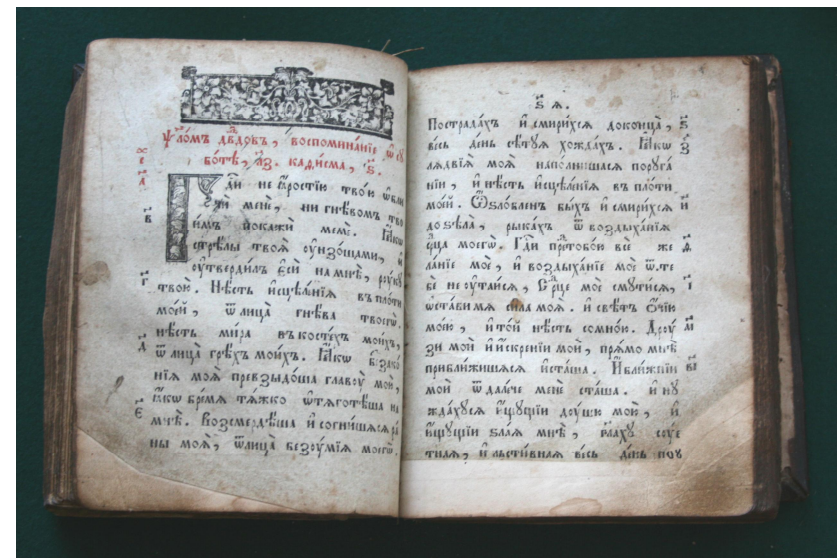 ѱало́мъ дв҃довъ, воспомина́нїе ѡ̑ сꙋ
бо́тѣ, л҃з. каѳи́сма, ѕ҃.
Гд҃и не ꙗ̑ростїю твое́ю ѡ̑бли
чи́ менѐ, ни гнѣ́вомъ тво
и́мъ покажѝ менѐ. Ꙗ҆́кѡ
стрѣ́лы твоѧ̀ оу̑нзо́ша ми, и҆
оу̑тверди́лъ є҆сѝ на мнѣ̀, рꙋ́кꙋ
твою̀. Нѣ́сть и҆сцѣле́нїѧ въ пло́ти
мое́й, ѿ лица̀ гнѣ́ва твоегѡ̀.
нѣ́сть ми́ра въ косте́хъ мои́хъ,
ѿ лица̀ грѣ́хъ мои́хъ. Ꙗ҆́кѡ беззако́
нїѧ моѧ̀ превзыдо́ша главꙋ̀ мою̀,
ꙗ҆́кѡ бре́мѧ тѧ́жко ѡ̑тѧготѣ́ша на
мнѣ̀. Возсмердѣ́ша и҆ согни́шасѧ ра́
ны моѧ̀, ѿ лица̀ безꙋ́мїѧ моегѡ̀.
ѕ҃ ѧ.
Пострада́хъ и҆ смири́хсѧ доконца̀,
ве́сь де́нь сѣ́тꙋѧ хожда́хъ. Ꙗ҆́кѡ
лѧ́двїѧ моѧ̀ напо́лнишасѧ порꙋга́
нїи, и҆ нѣ́сть и҆сцѣле́нїѧ въ пло́ти
мое́й. Ѡ҆ѕло́бленъ бы́хъ и҆ смири́хсѧ
до ѕѣла̀, рыка́хъ ѿ воздыха́нїѧ
ср҃ца моегѡ̀. Гд҃и пре́тобо́ю всѐ же
ла́нїе моѐ, и҆ воздыха́нїе моѐ ѿ те
бѐ не оу̑таи́сѧ, Ср҃це моѐ смꙋти́сѧ,
ѡ̑ста́ви мѧ си́ла моѧ̀. и҆ свѣ́тъ ѻ҆́чїю
мое́ю, и҆ то́й нѣ́сть со мно́ю. Дрꙋ́
зи моѝ и҆ и҆́скренїи моѝ, прѧ́мо мнѣ̀
прибли́жишасѧ и҆ ста́ша. И҆ бли́жнїи
моѝ ѿдале́че менѐ ста́ша. и҆ нꙋ
жда́хꙋсѧ и҆́щꙋщїи дꙋ́шꙋ мою̀, и҆
и҆́щꙋщїи ѕла́ѧ мнѣ̀, гл҃ахꙋ сꙋ́е
тнаѧ, и҆ льсти́внаѧ ве́сь де́нь поꙋ